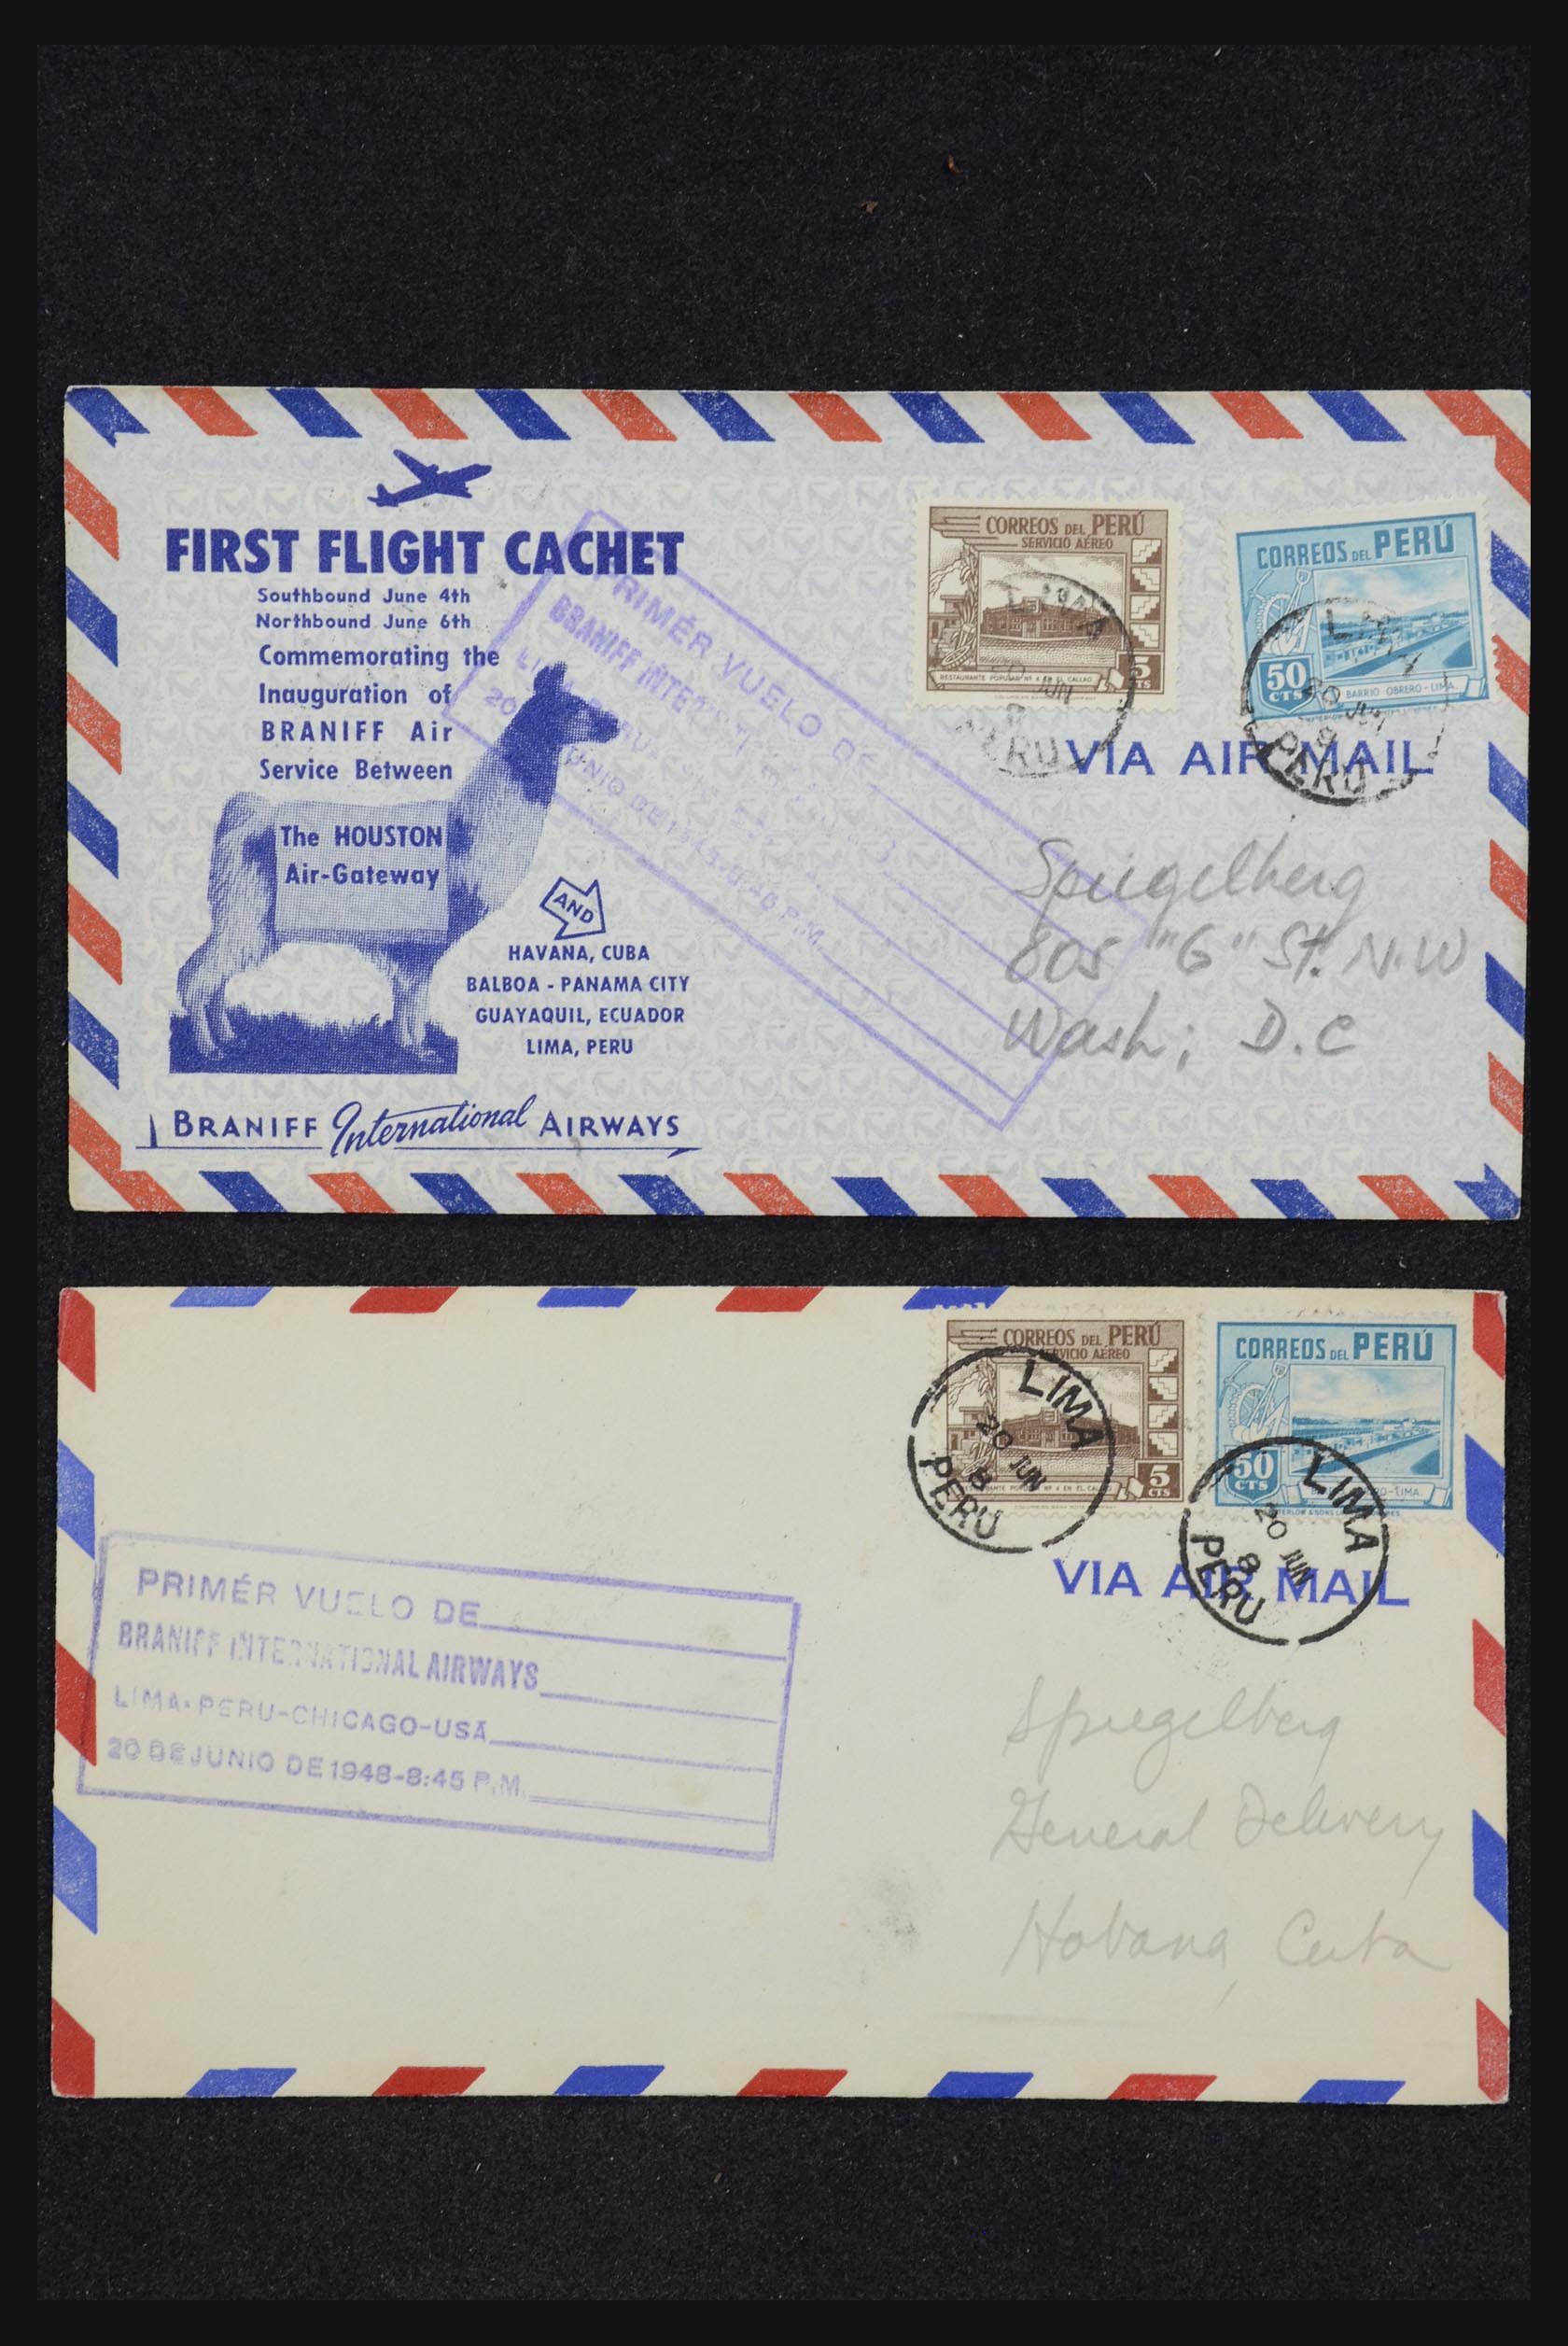 FIRST FLIGHT CACHET
Southbound June 4th
Northbound June 6th
Commemorating the
Inauguration of
BRANIFF Air
Service Between
The HOUSTON
Air-Gateway
AND
HAVANA, CUBA
BALBOA - PANAMA CITY
GUAYAQUIL, ECUADOR
LIMA, PERU
BRANIFF International AIRWAYS
PRIMÉR VUELO DE
BRANIFF
20
8:45 P.M.
CORREOS DEL PERÚ
SERVICIO AÉREO
RESTAURANTE POPULAR Nº 4 EN EL CALLAO
5
CTS
LIMA
20 JUN
8
PERU
CORREOS DEL PERÚ
50
CTS
BARRIO OBRERO-LIMA
LIMA
20 JUN
8
PERU
VIA AIR MAIL
Spiegelberg
805 "G" St. N.W
Wash; D.C
CORREOS DEL PERÚ
SERVICIO AÉREO
Nº 4 EN EL
5
CTS
LIMA
20 JUN
8
PERU
CORREOS DEL PERÚ
50
CTS
-LIMA
LIMA
20 JUN
8
PERU
VIA AIR MAIL
PRIMÉR VUELO DE
BRANIFF INTERNATIONAL AIRWAYS
LIMA-PERU-CHICAGO-USA
20 DE JUNIO DE 1948-8:45 P.M.
Spiegelberg
General Delivery
Habana, Cuba